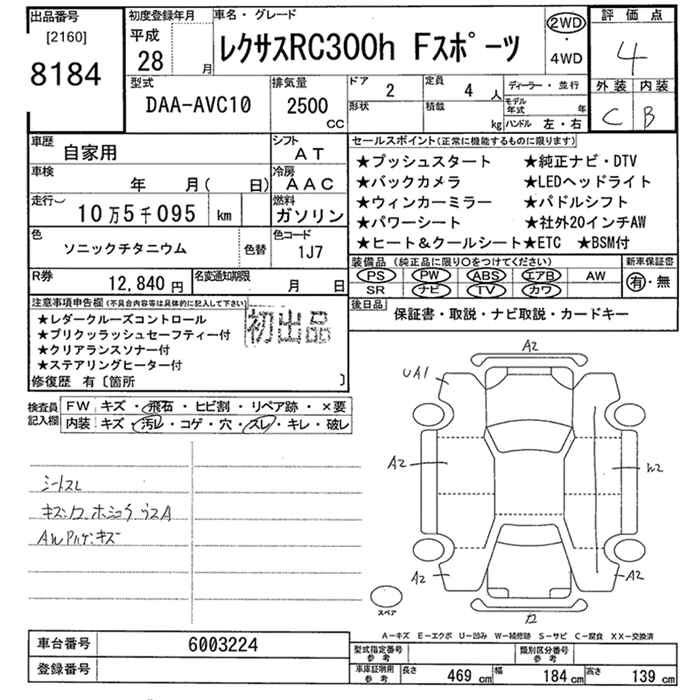 出品番号 初度登録年月 車名・グレード 評価点
[2160] 平成 2WD 4
8184 28 月 レクサスRC300h Fスポーツ ・ 4WD
型式 排気量 ドア 2 定員 4 人 ディーラー・並行 外装 内装
DAA-AVC10 2500 CC 形状 積載 kg モデル年式 年 C B
ハンドル 左・右
車歴 自家用 シフト AT セールスポイント(正常に機能するものに限り)
車検 年 月( 日) 冷房 AAC ★プッシュスタート ★純正ナビ・DTV
★バックカメラ ★LEDヘッドライト
走行 10万5千095 km 燃料 ガソリン ★ウィンカーミラー ★パドルシフト
★パワーシート ★社外20インチAW
色 ソニックチタニウム 色替 色コード 1J7 ★ヒート&クールシート★ETC ★BSM付
装備品(純正品に限り〇をつけてください) 新車保証書
R券 12,840 円 名変通知期限 月 日 PS PW ABS エアB AW 有・無
SR ナビ TV カワ
注意事項申告欄(不具合内容等は具体的に記入して下さい) 後日品
★レダークルーズコントロール 初出品 保証書・取説・ナビ取説・カードキー
★プリクゥラッシュセーフティー付
★クリアランスソナー付
★ステアリングヒーター付
修復歴 有〔箇所 〕
検査員記入欄 FW キズ・飛石・ヒビ割・リペア跡・×要
内装 キズ・汚レ・コゲ・穴・スレ・キレ・破レ
A2
UA1
A2 W2
シートスレ
A2 A2
スペア
A-キズ E-エクボ U-凹み W-補修跡 S-サビ C-腐食 XX-交換済
車台番号 6003224 型式指定番号 参考 類別区分番号 参考
登録番号 車庫証明用 参考 長さ 469 cm 幅 184 cm 高さ 139 cm